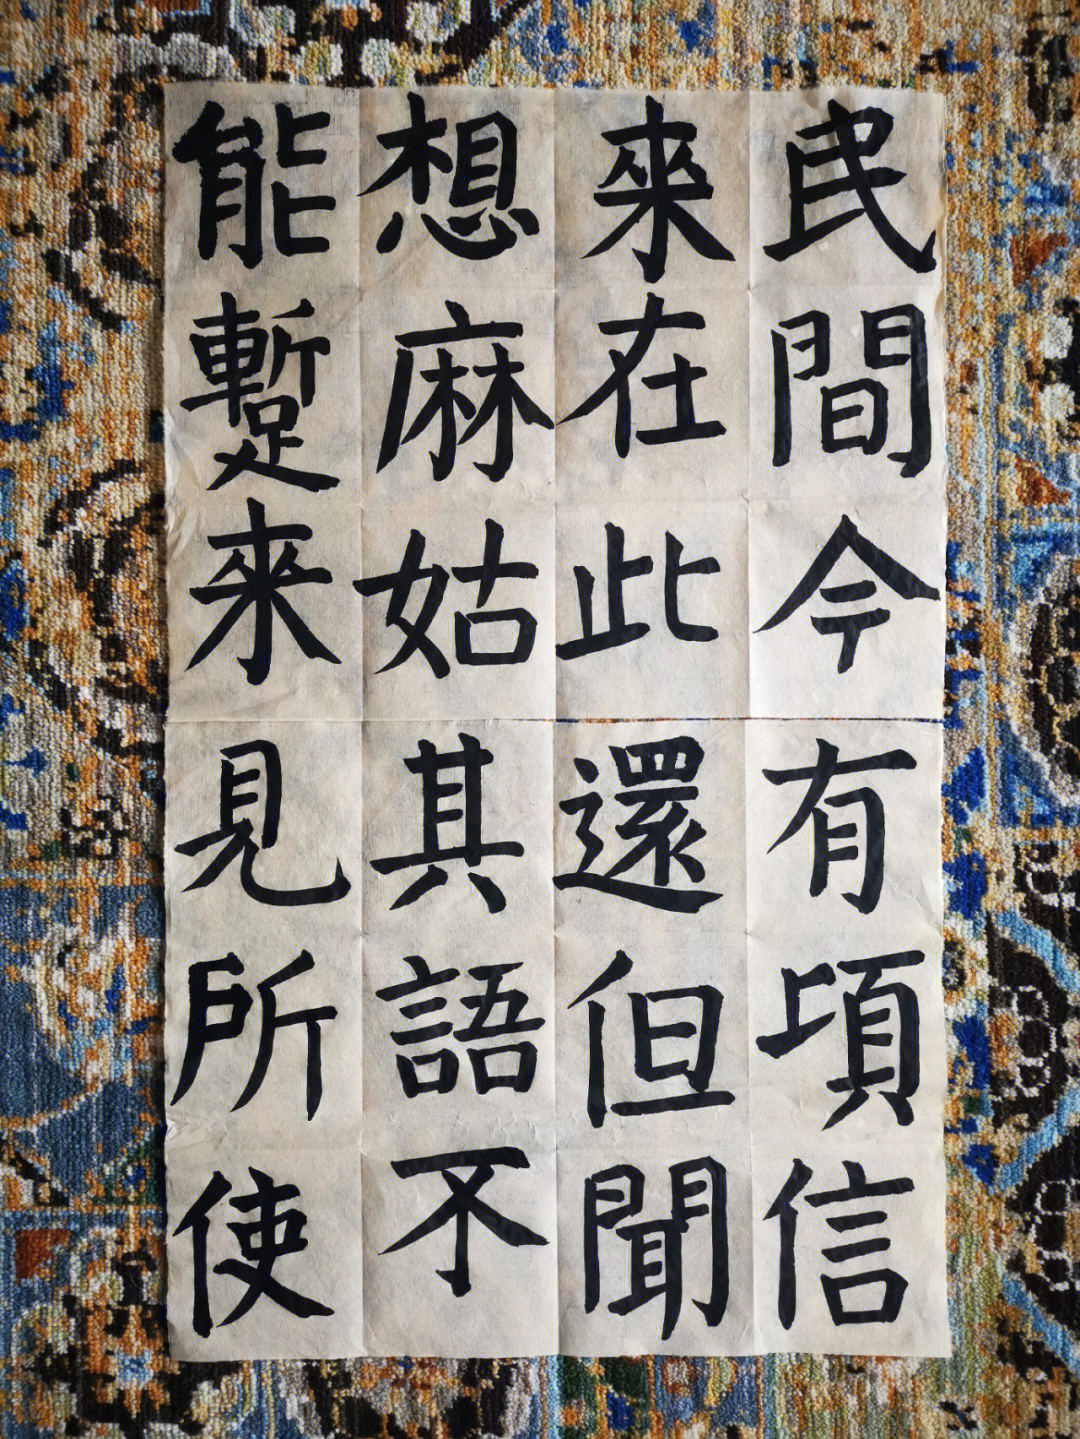 民間今有頃信
來在此還但聞
想麻姑其語不
能蹔來見所使